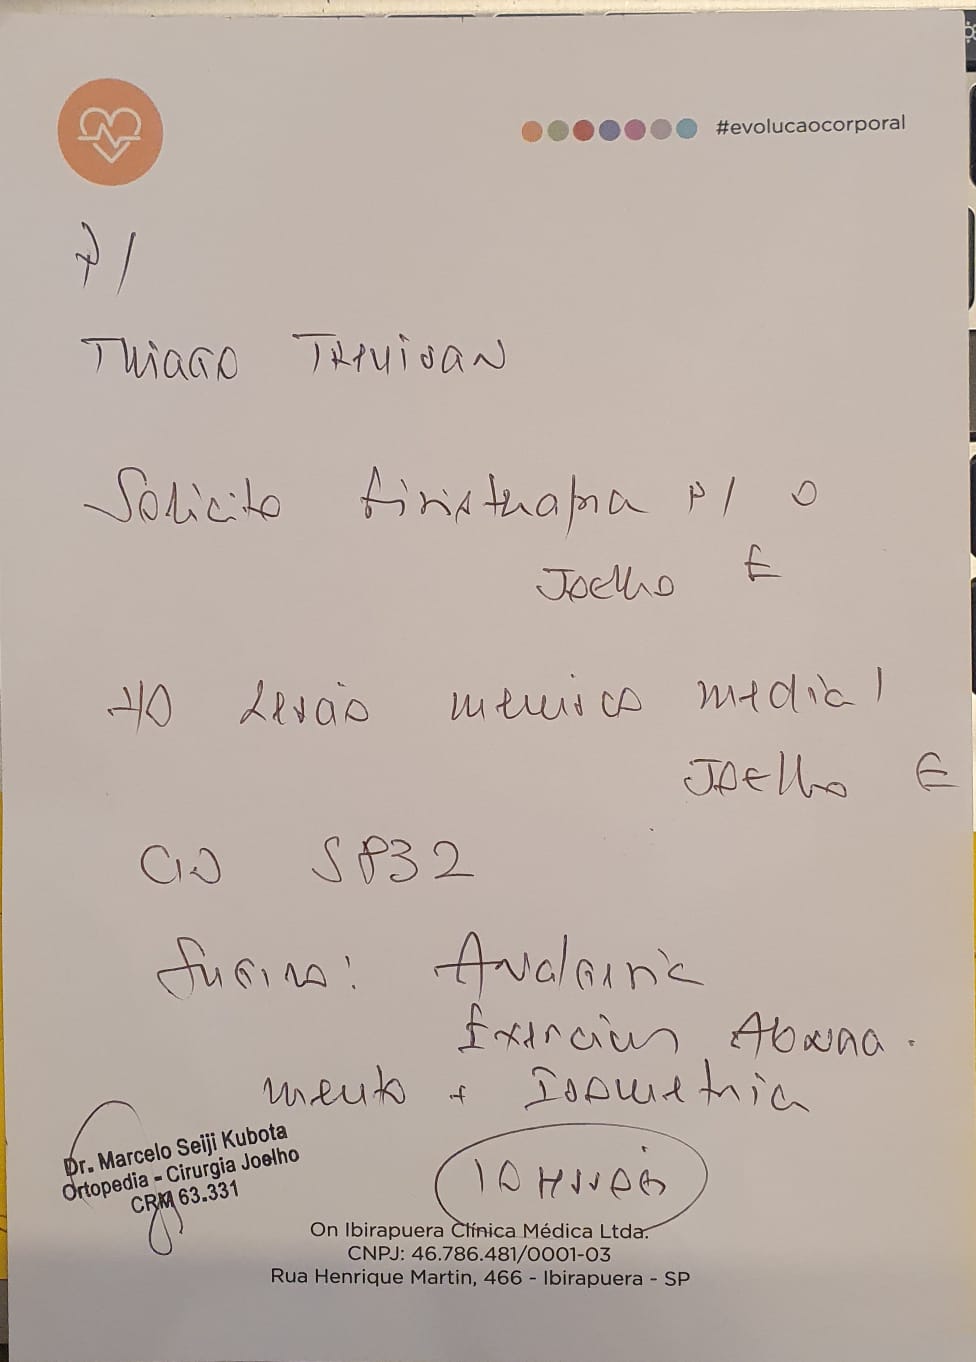 #evolucaocorporal
P/
Thiago Trevisan
Solicito fisioterapia p/ o
Joelho E
HD Lesão menisco medial
Joelho E
CID S832
Analgesia
Exercícios Alonga-
mento + Isometria
10 sessões
Dr. Marcelo Seiji Kubota
Ortopedia - Cirurgia Joelho
CRM 63.331
On Ibirapuera Clínica Médica Ltda.
CNPJ: 46.786.481/0001-03
Rua Henrique Martin, 466 - Ibirapuera - SP